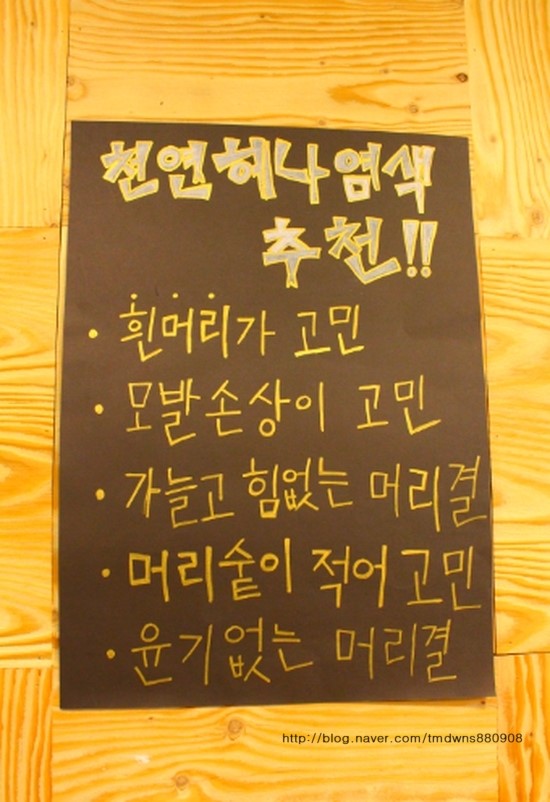 천연헤나염색
추천!!
• 흰머리가 고민
• 모발손상이 고민
• 가늘고 힘없는 머리결
• 머리숱이 적어 고민
• 윤기없는 머리결
http://blog.naver.com/tmdwns880908